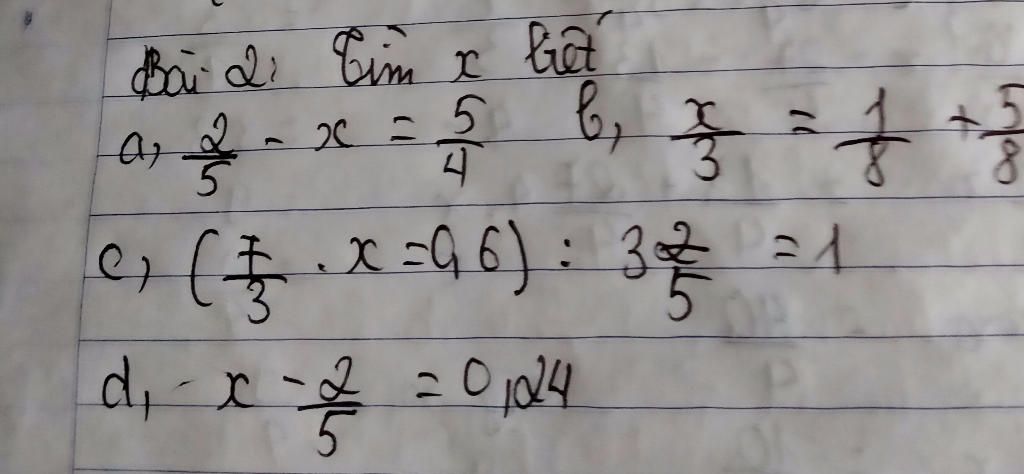 Bài 2: Tìm x biết
a, 2/5 - x = 5/4 b, x/3 = 1/8 + 5/8
c, (7/3 . x = 0,6) : 3 2/5 = 1
d, - x - 2/5 = 0,24